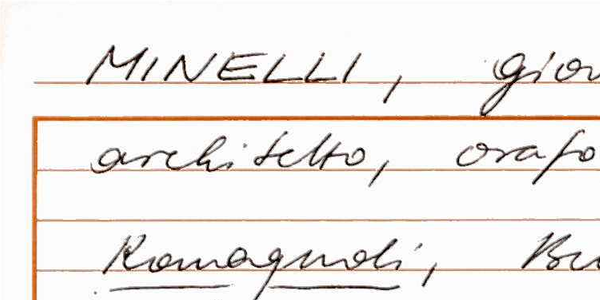 MINELLI, giov
architetto, orafo
Romagnoli, Bu